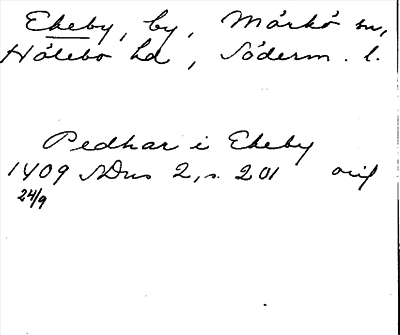 Ekeby, by, Mörkö sn,
Hölebo hd, Söderm. l.
Pedhar i Ekeby
1409 SDns 2, s. 201 orig
24/9